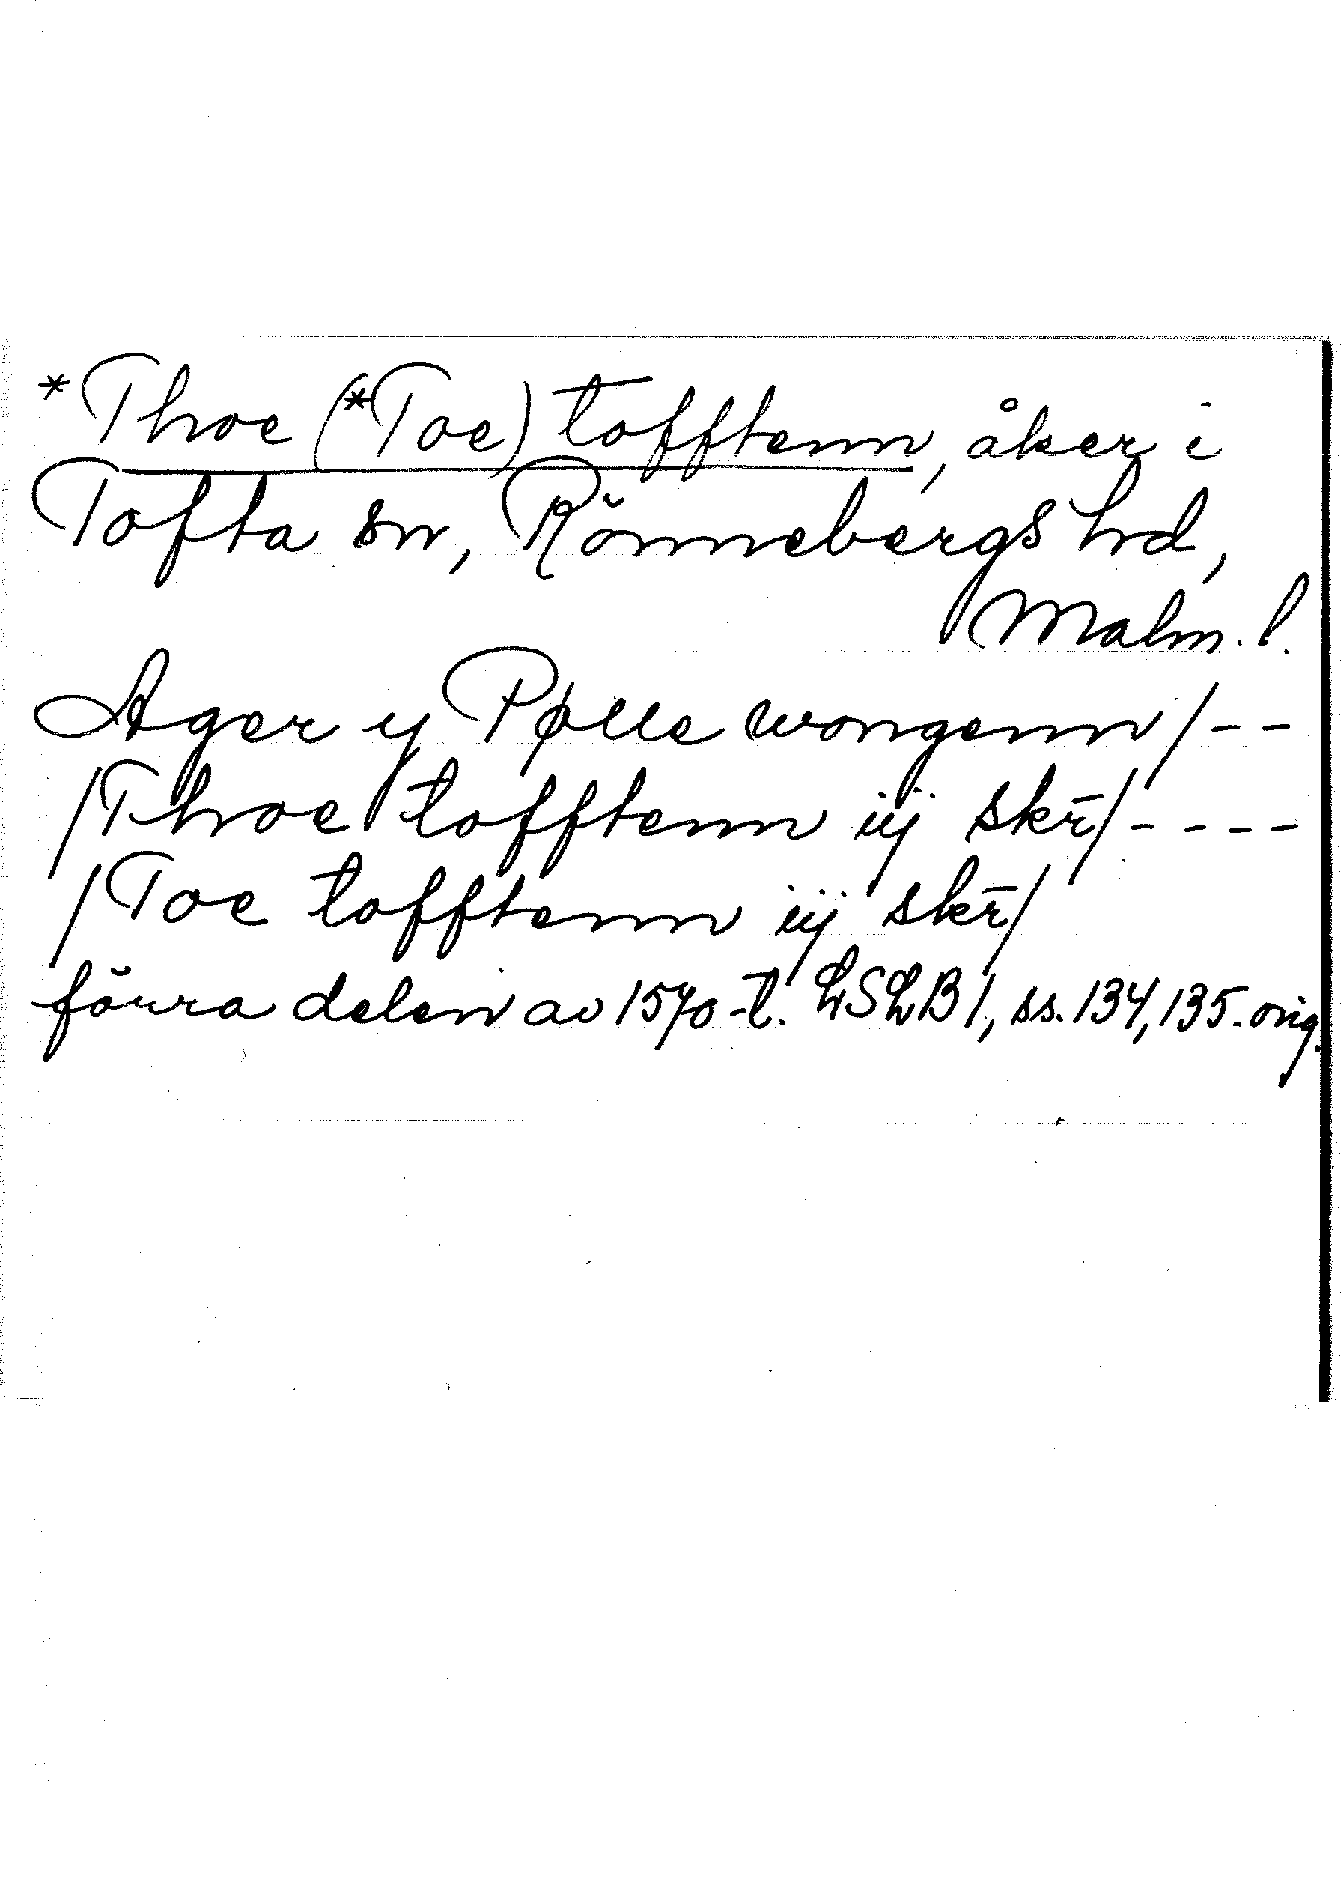 *Thoe (*Toe) tofftenn, åker i
Tofta sn, Rönnebergs hd,
Malm. l.
Ager y Pølle wongenn /--
/Thoe tofftenn iij skr̄/----
/Toe tofftenn iij skr̄/
förra delen av 1570-t. LSLB 1, ss. 134, 135. orig.